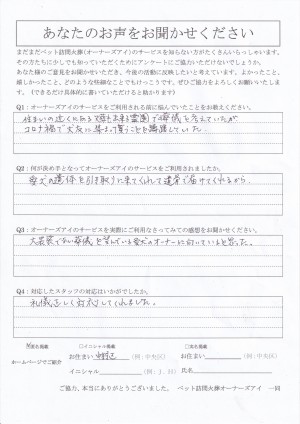 あなたのお声をお聞かせください
まだまだペット訪問火葬(オーナーズアイ)のサービスを知らない方がたくさんいらっしゃいます。
その方たちに少しでも知っていただくためにアンケートにご協力いただけないでしょうか。
あなた様のご意見をお聞かせいただき、今後の活動に反映したいと考えています。よかったこと、
嬉しかったこと、どのような些細なことでもけっこうです。ぜひご協力をよろしくお願いいたします。
(できるだけ具体的に書いていただけると助かります)
Q1:オーナーズアイのサービスをご利用される前に悩んでいたことをお教えください。
住まいの近くにある火葬出来る霊園で葬儀を考えていたが
コロナ禍で大勢に集まって貰うことを躊躇していた。
Q2:何が決め手となってオーナーズアイのサービスをご利用されましたか。
愛犬の遺体を引き取りに来てくれて遺骨で届けてくれるから
Q3:オーナーズアイのサービスを実際にご利用なさってみての感想をお聞かせください。
大袈裟でない葬儀を望んでいる愛犬のオーナーに向いていると思った。
Q4:対応したスタッフの対応はいかがでしたか。
礼儀正しく対応してくれました。
ホームページでご紹介
匿名掲載
□イニシャル掲載
□名名掲載
お住まい
(例:中央区)
お住まい
(例:中央区)
イニシャル
(例:J.H)
氏名
ご協力、本当にありがとうございました。 ペット訪問火葬オーナーズアイ 一同